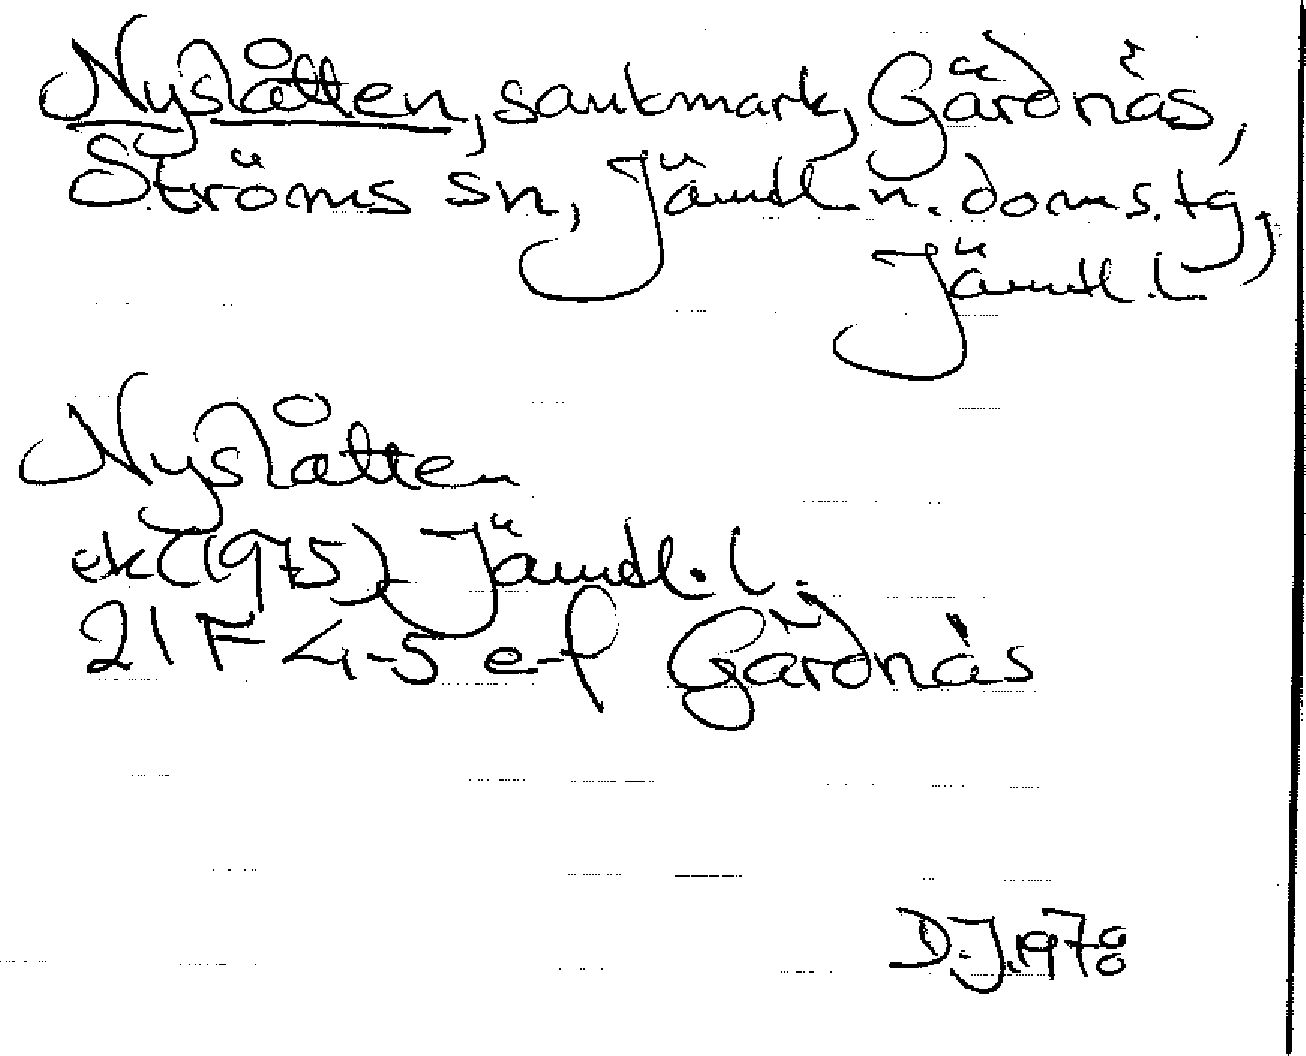 Nyslåtten, sankmark, Gärdnäs,
Ströms sn, Jämtl.n. doms.tg,
Jämtl.l.
Nyslåtten
ek (1975) Jämtl.l.
21F 4-5 e-f Gärdnäs
D.J. 1978